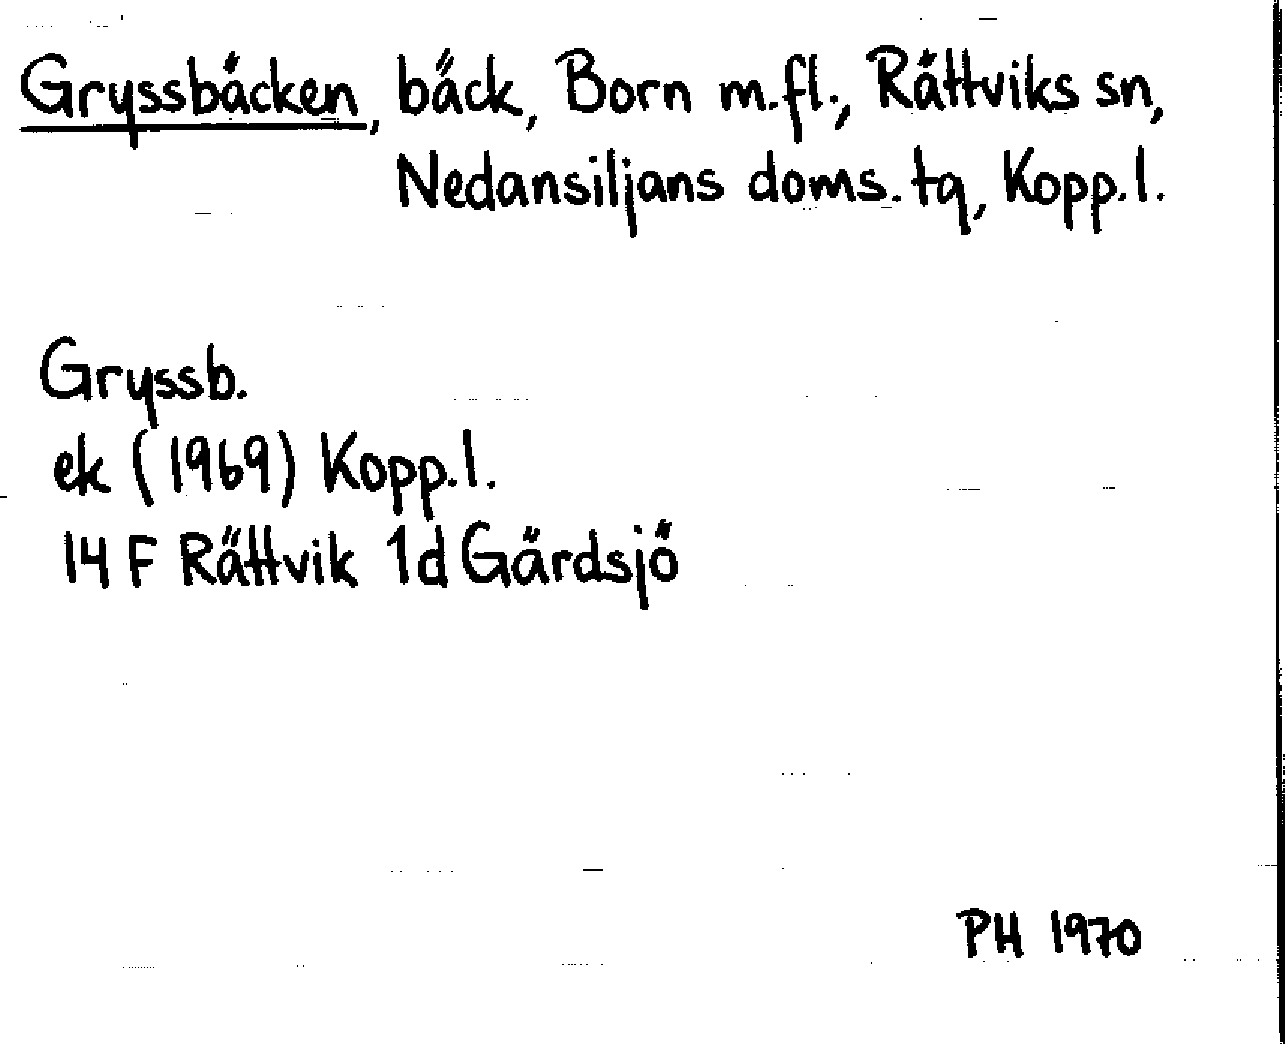 Gryssbäcken, bäck, Born m.fl., Rättviks sn,
Nedansiljans doms. tq, Kopp.l.
Gryssb.
ek (1969) Kopp.l.
14 F Rättvik 1d Gärdsjö
PH 1970